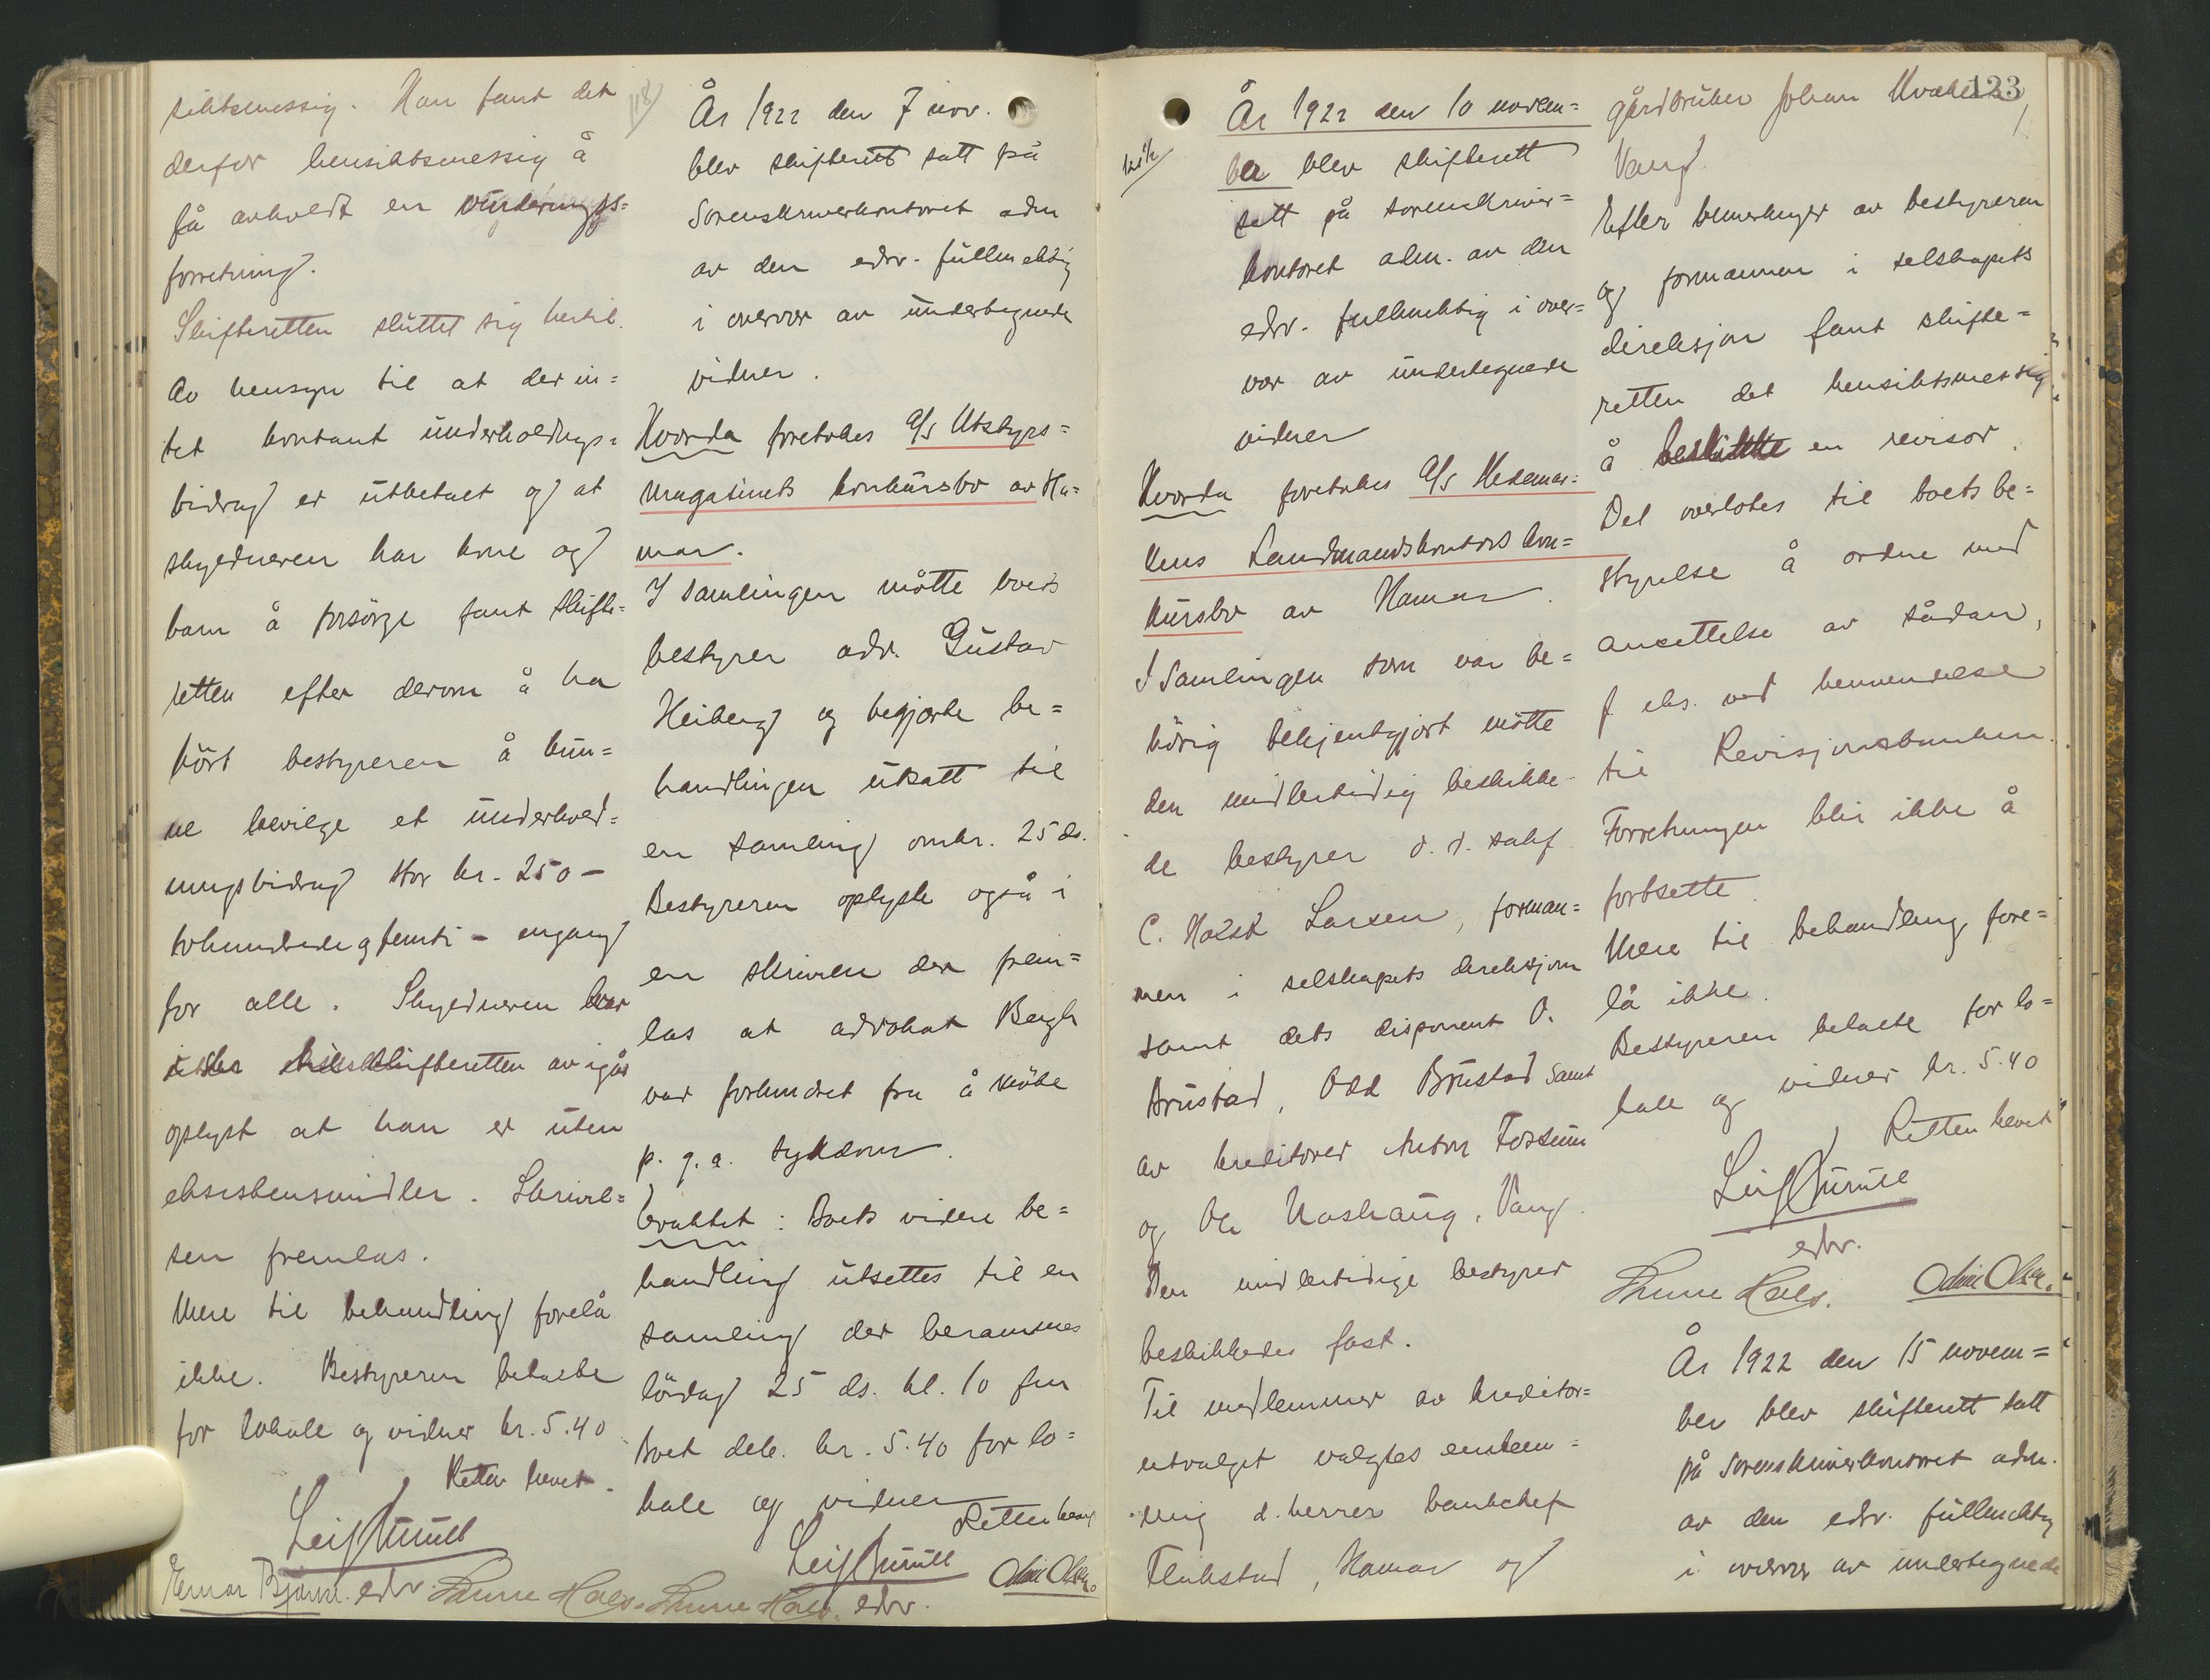 siktsmessig. Han fant det
derfor hensiktsmessig å
få avholdt en vurderings=
forretning.
Skifteretten sluttet sig hertil.
Av hensyn til at der in=
tet kontant underholdnings=
bidrag er utbetalt og at
skyldneren har kone og
barn å forsørge fant skifte=
retten efter derom å ha
hørt bestyreren å kun=
ne bevilge et underhold=
ningsbidrag stor kr. 250 -
tohundrede og femti - engang
for alle. Skyldneren har
skifteretten av igår
oplyst at han er uten
eksistensmidler. Skrivel=
sen fremlas.
Mere til behandling forelå
ikke. Bestyreren betalte
for lokale og vidner kr. 5.40
Retten hevet.
Einar Bjørn. edsv. Thune Hals.
År 1922 den 7 nov.
blev skifterett satt på
Sorenskriverkontoret adm
av den edsv. fullmektig
i overvær av undertegnede
vidner.
Hvorda foretokes A/S Utstyrs=
magasinets konkursbo av Ha=
mar.
I samlingen møtte boets
bestyrer adv. Gustav
Heiberg og begjærte be=
handlingen utsatt til
en samling omkr. 25 ds.
Bestyreren oplyste også i
en skrivelse der frem=
las at advokat Bergh
var forhindret fra å møte
p. g. a. sykdom.
Besluttet: Boets videre be=
handling utsettes til en
samling der berammes
lørdag 25 ds. kl. 10 fm
Boet deb. kr. 5.40 for lo=
kale og vidner
Retten hevet
Thune Hals. edsv. Odin Olsen.
123
År 1922 den 10 novem=
ber blev skifterett
satt på sorenskriver=
kontoret adm. av den
edsv. fullmektig i over=
vær av undertegnede
vidner
Hvorda foretokes A/S Hedemar=
kens Landmandskontors kon=
kursbo av Hamar.
I Samlingen som var be=
hørig bekjentgjort møtte
den midlertidig beskikke-
de bestyrer o. r. sakf.
C. Holst Larsen, forman=
nen i selskapets direksjon
samt dets disponent O.
Brustad, Odd Brustad samt
av kreditorer Anton Fossum
og Ole Uoshaug, Vang.
Den midlertidige bestyrer
beskikkedes fast.
Til medlemmer av kreditor=
utvalget valgtes enstem=
mig d. herrer bankchef
Flakstad, Hamar og
gårdbruker Johan
Vang.
Efter bemerkninger av bestyreren
og formannen i selskapets
direksjon fant skifte=
retten det hensiktsmessig
å beskikke en revisor.
Det overlotes til boets be=
styrelse å ordne med
ansettelse av sådan,
f. eks. ved henvendelse
til Revisjonsbanken.
Forretningen blir ikke å
fortsette.
Mere til behandling fore=
lå ikke.
Bestyreren betalte for lo=
kale og vidner kr. 5.40
Retten hevet
edsv.
Thune Hals. Odin Olsen.
År 1922 den 15 novem=
ber blev skifterett satt
på Sorenskriverkontoret adm.
av den edsv. fullmektig
i overvær av undertegnede